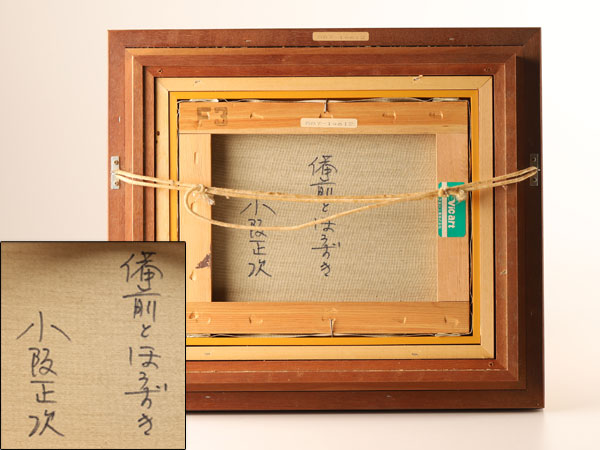 備前とほおずき
小阪正次
F3
vicart
備前とほおずき
小阪正次